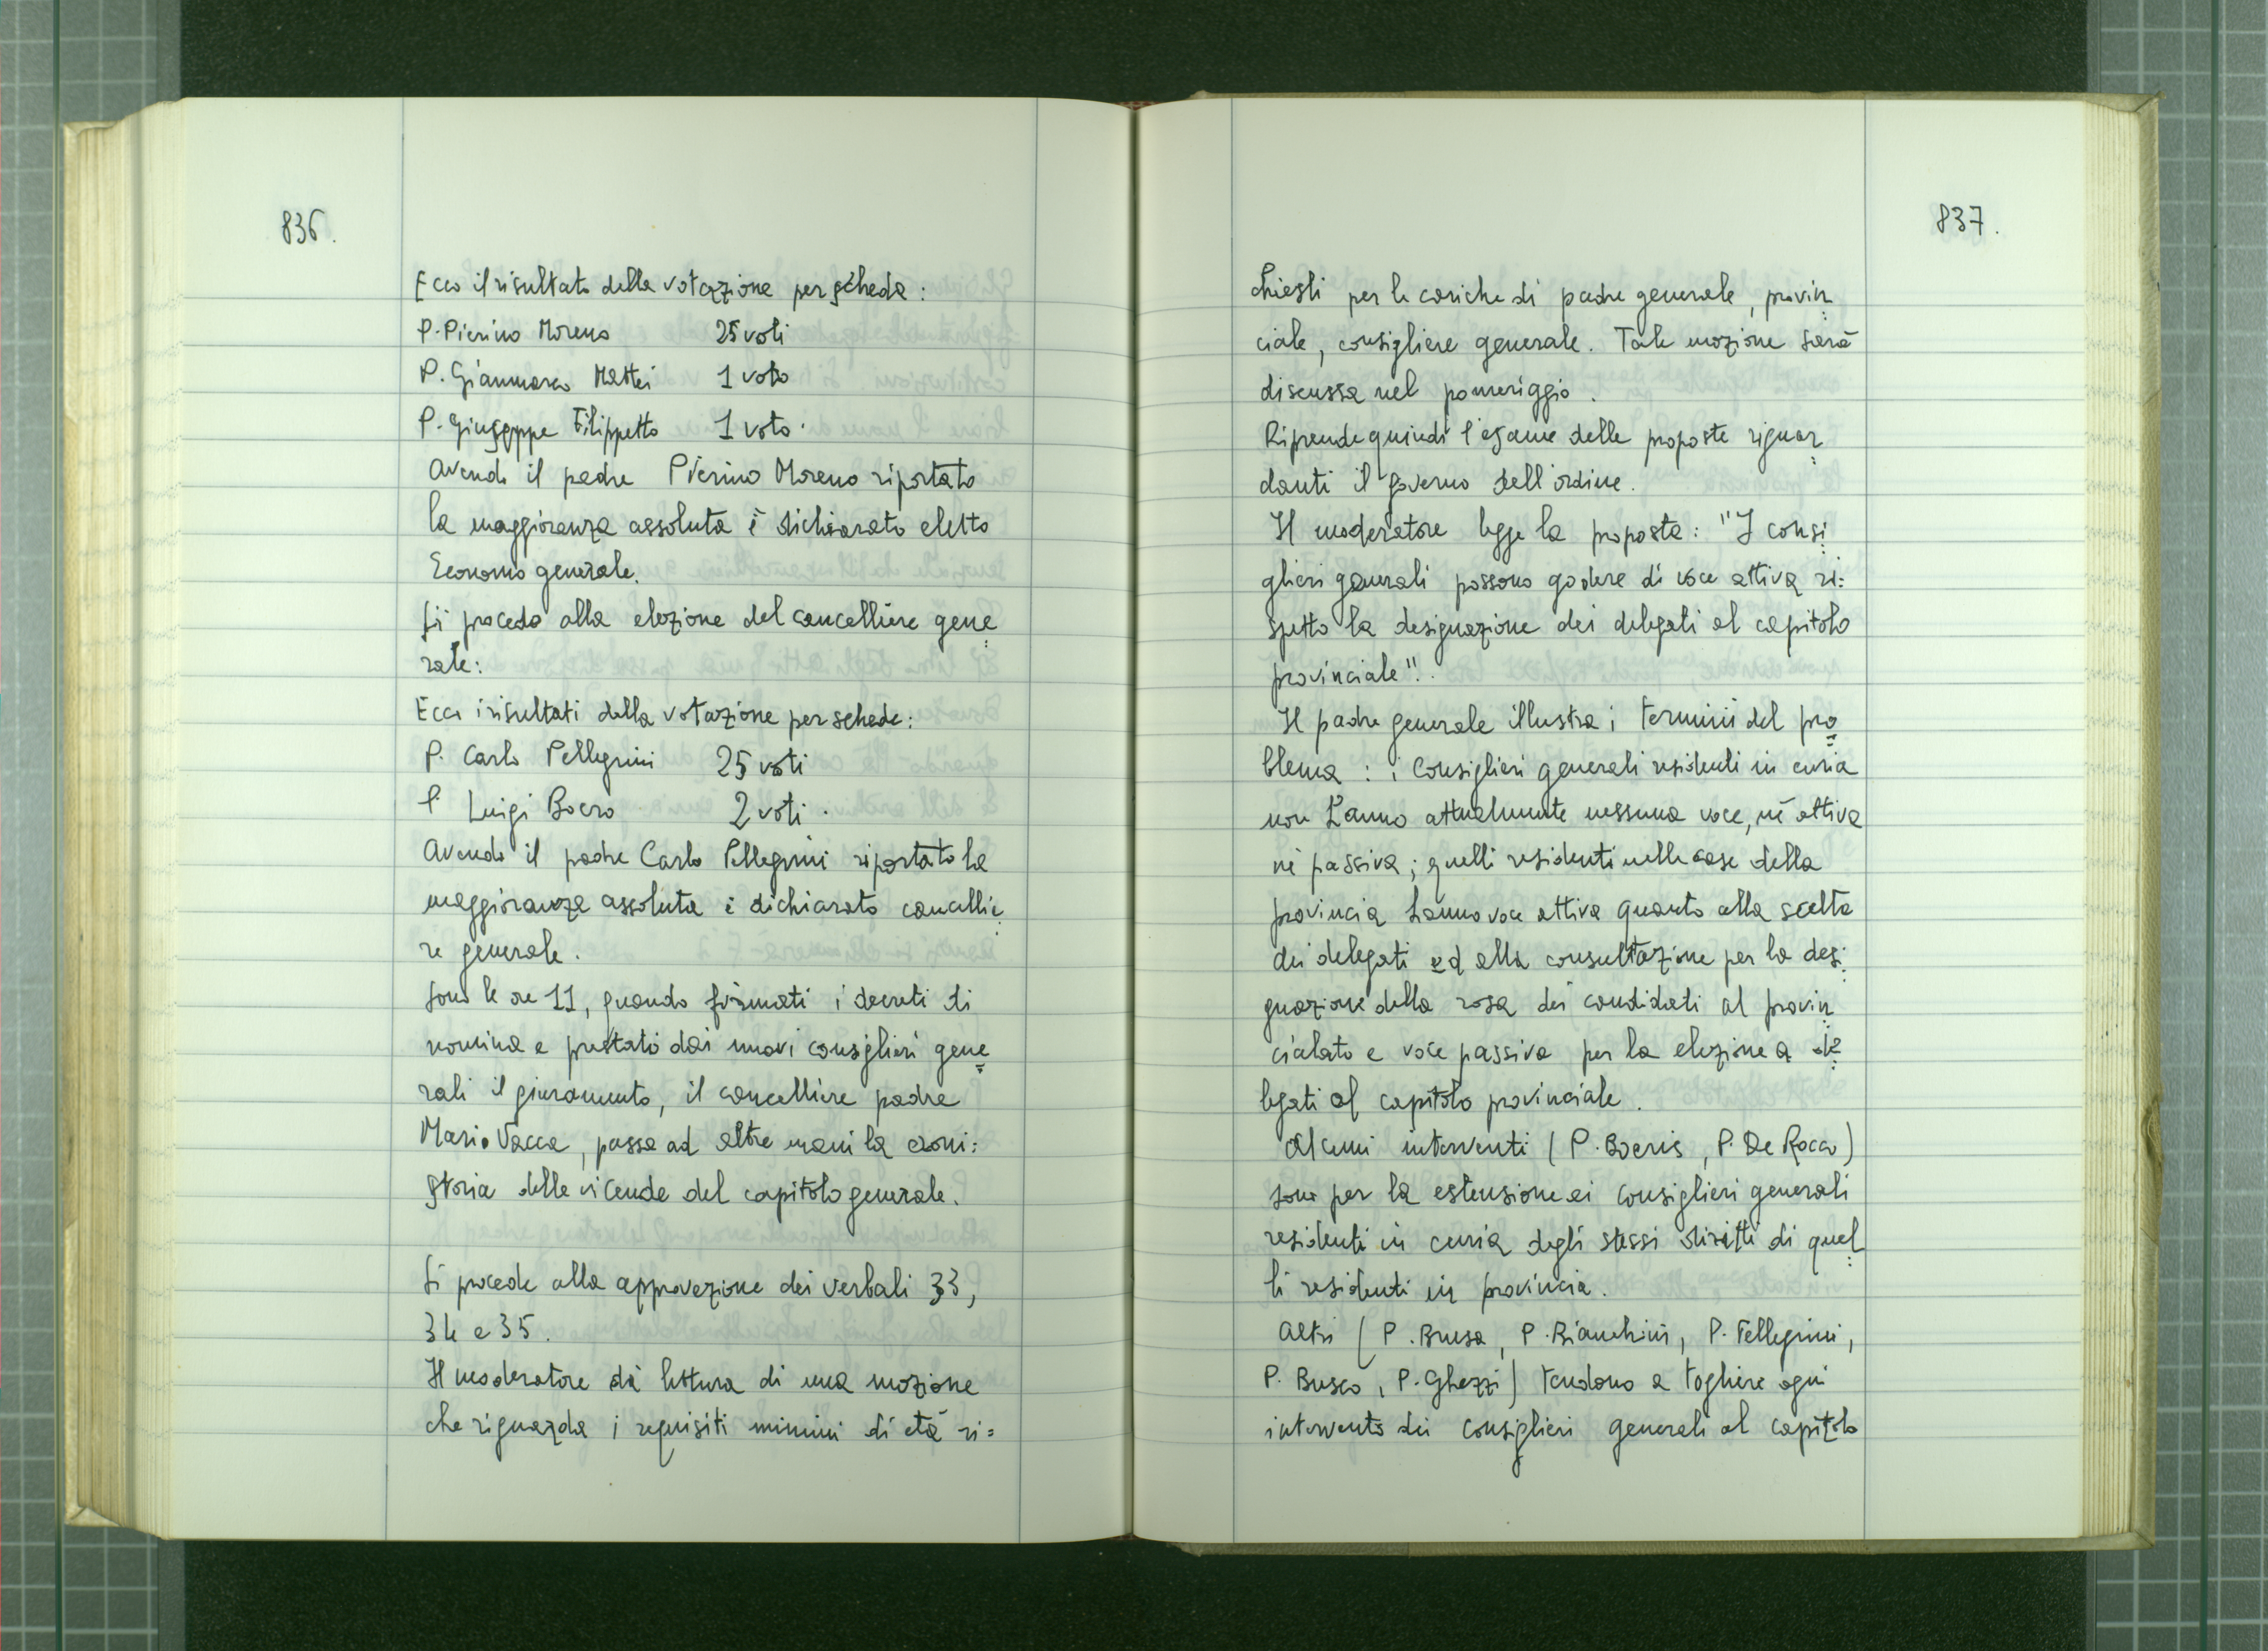 836.
Ecco il risultato della votazione per scheda:
P. Pierino Moreno 25 voti
P. Gianmarco Mattei 1 voto
P. Giuseppe Filippetto 1 voto.
Avendo il padre Pierino Moreno riportato
la maggioranza assoluta è dichiarato eletto
Economo generale.
Si procede alla elezione del cancelliere gene
rale:
Ecco i risultati della votazione per schede:
P. Carlo Pellegrini 25 voti
P. Luigi Boero 2 voti.
Avendo il padre Carlo Pellegrini riportato la
maggioranza assoluta è dichiarato cancellie
re generale.
Sono le ore 11, quando firmati i decreti di
nomina e prestato dai nuovi consiglieri gene
rali il giuramento, il cancelliere padre
Mario Vacca, passa ad altre mani la croni=
storia delle vicende del capitolo generale.
Si procede alla approvazione dei verbali 33,
34 e 35.
Il moderatore dà lettura di una mozione
che riguarda i requisiti minimi di età ri=
837.
chiesti per le cariche di padre generale, provin
ciale, consigliere generale. Tale mozione sarà
discussa nel pomeriggio.
Riprende quindi l'esame delle proposte riguar
danti il governo dell'ordine.
Il moderatore legge la proposta: "I consi
glieri generali possono godere di voce attiva ri=
spetto la designazione dei delegati al capitolo
provinciale".
Il padre generale illustra i termini del pro
blema: i Consiglieri generali residenti in curia
non hanno attualmente nessuna voce, né attiva
né passiva; quelli residenti nelle case della
provincia hanno voce attiva quanto alla scelta
dei delegati ed alla consultazione per la desi
gnazione della rosa dei candidati al provin
cialato e voce passiva per la elezione a de
legati al capitolo provinciale.
Alcuni interventi (P. Boeris, P. De Rocco)
sono per la estensione ai consiglieri generali
residenti in curia degli stessi diritti di quel
li residenti in provincia.
Altri (P. Brusa, P. Bianchini, P. Pellegrini,
P. Busco, P. Ghezzi) tendono a togliere ogni
intervento dei consiglieri generali al capitolo